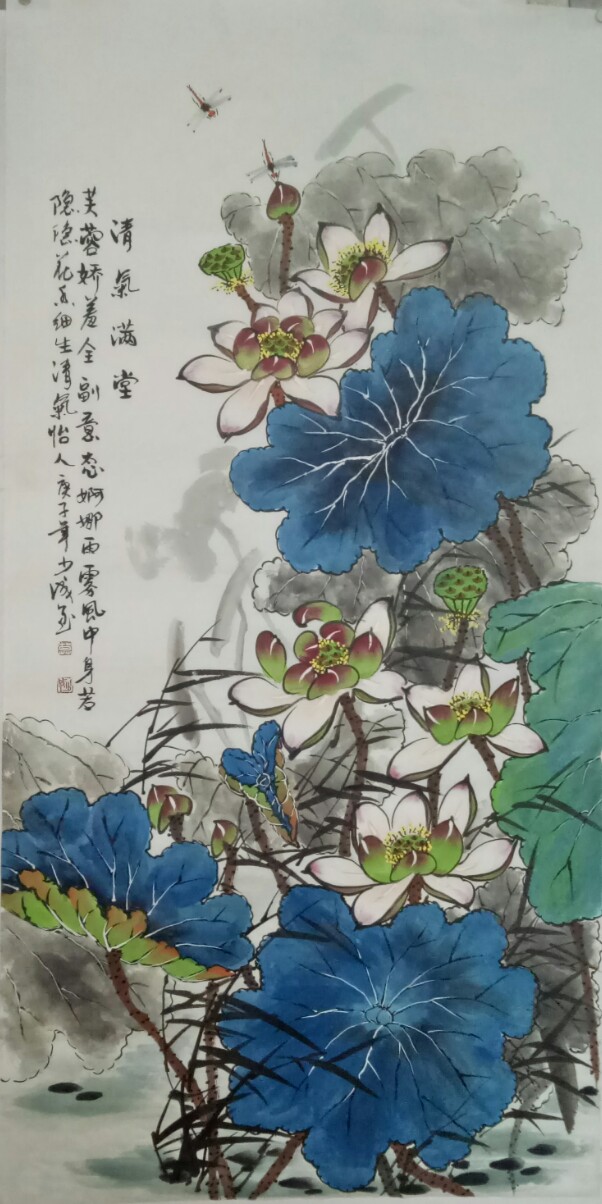 清氣满堂
芙蓉娇羞全副意态婀娜雨雾風中身若
隐隐花香细生清氣怡人庚子年少成画